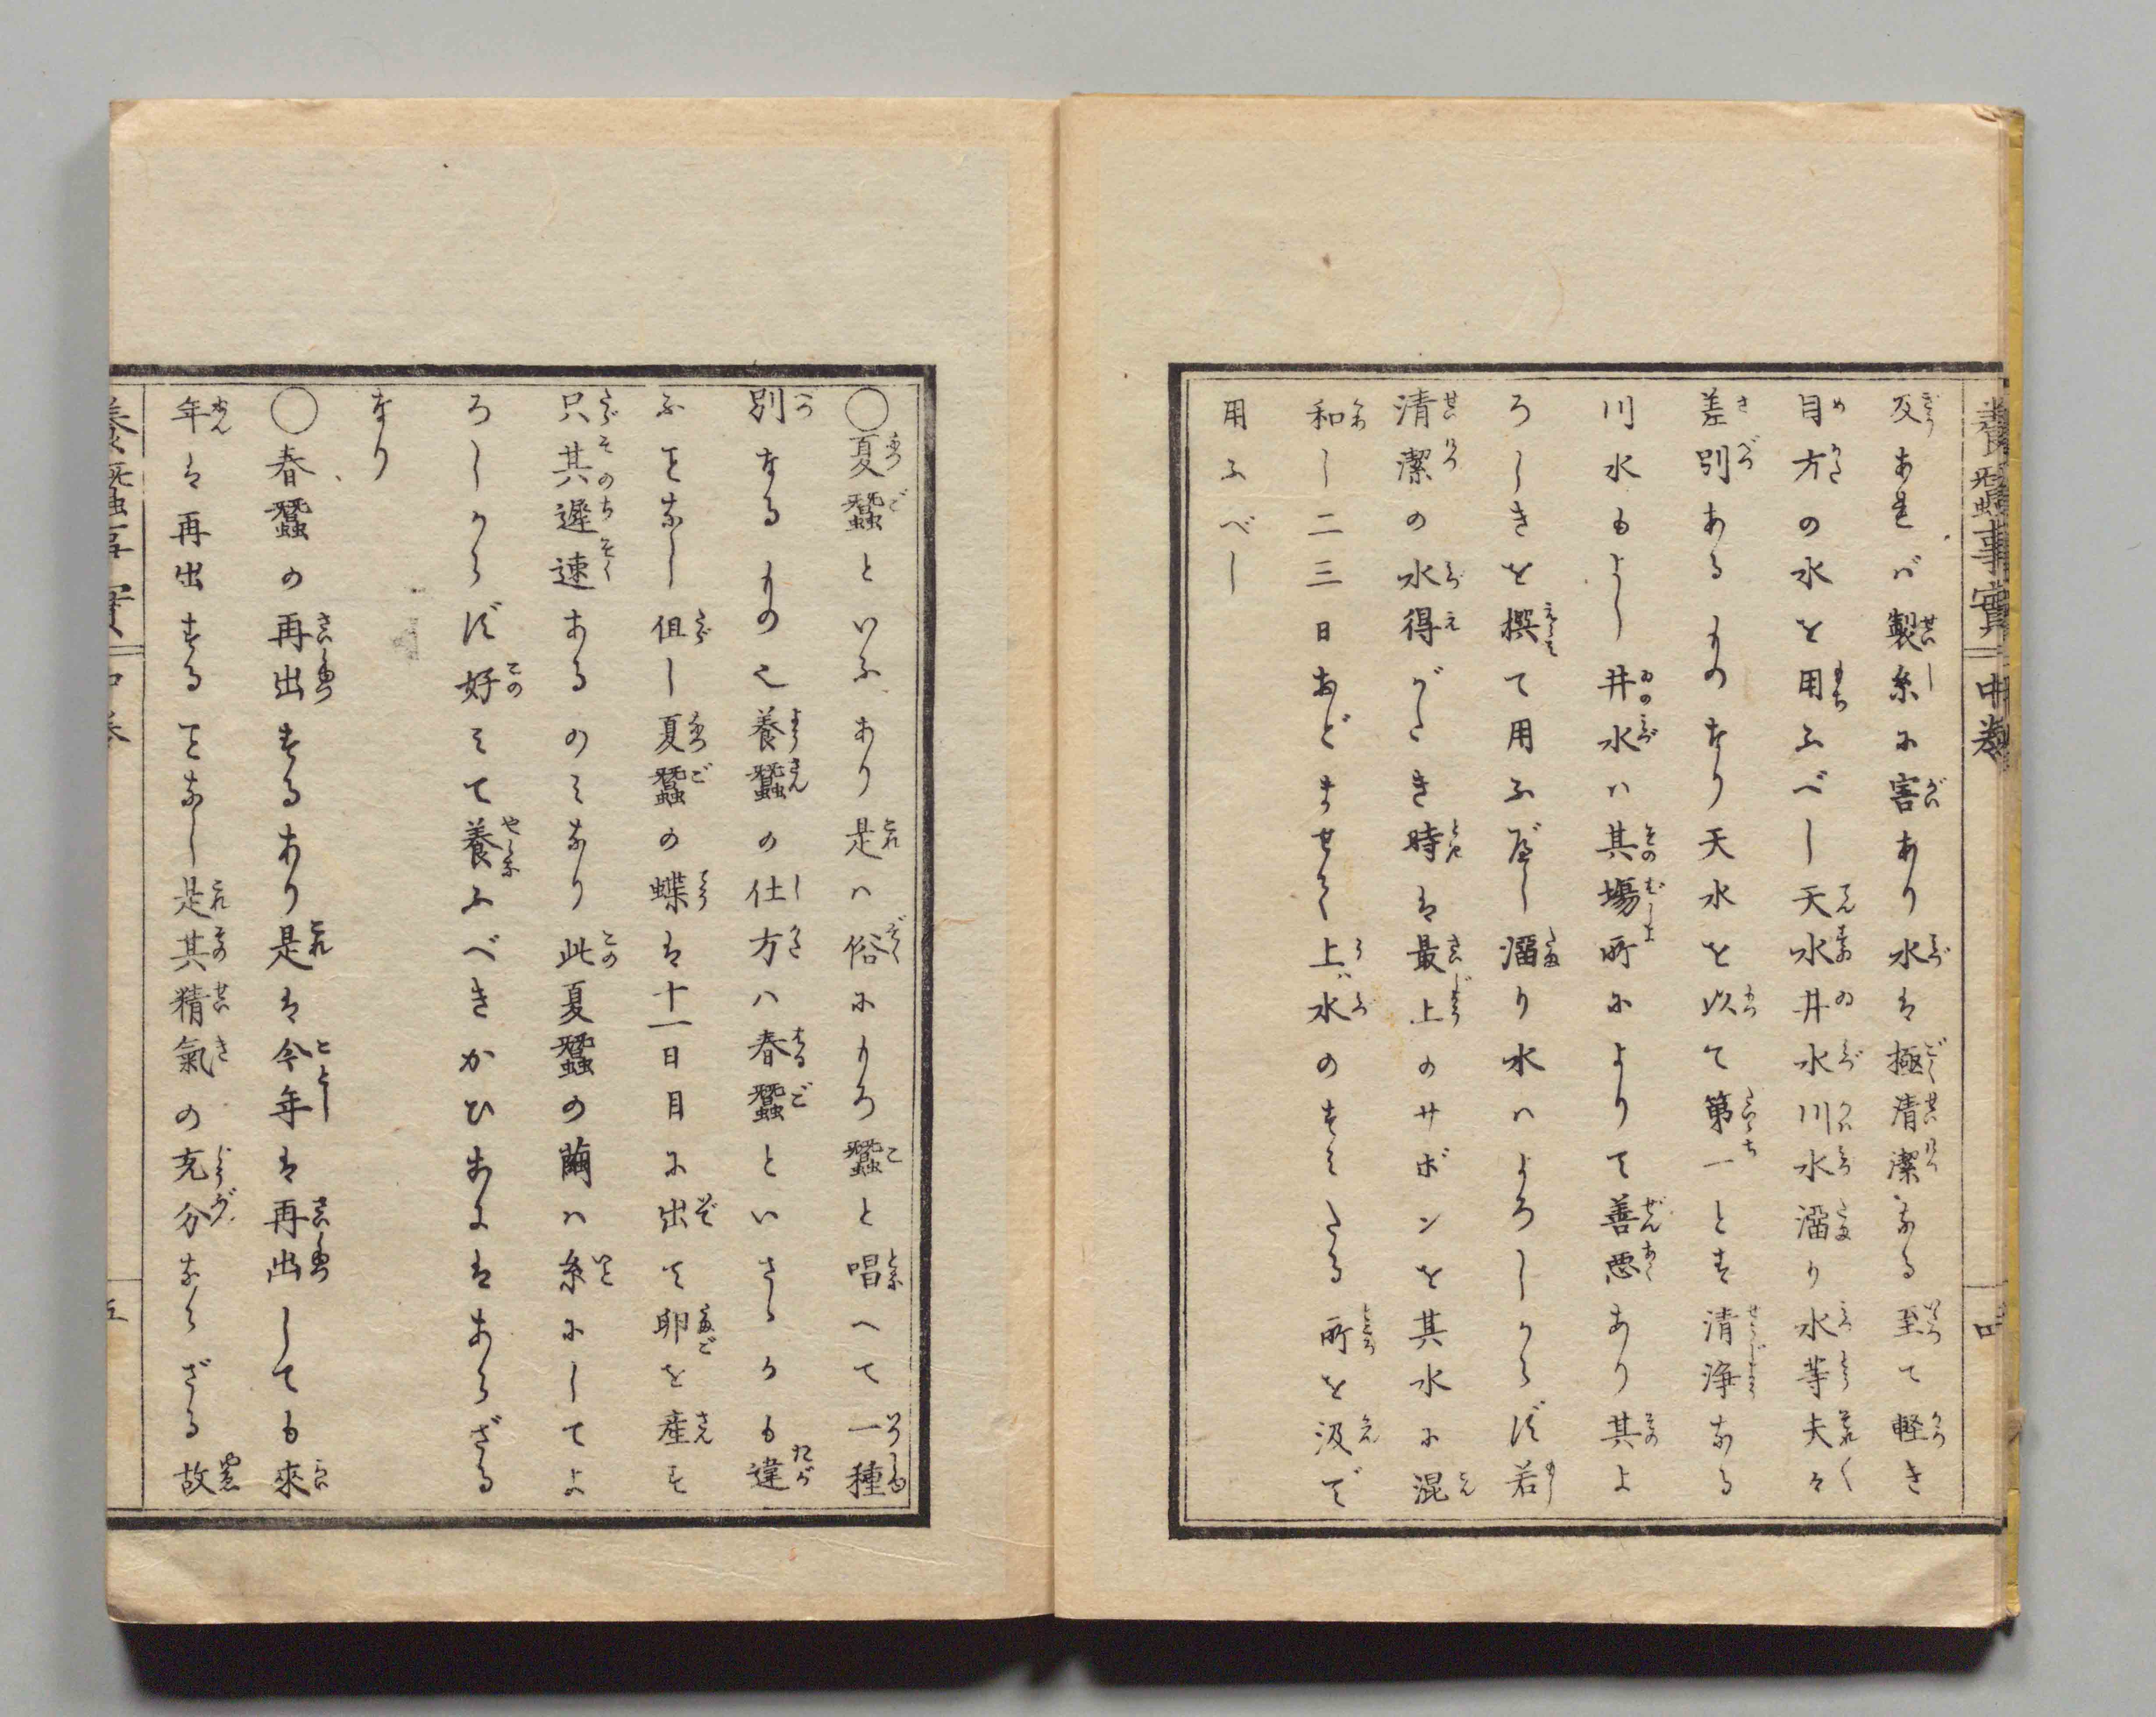 養蠶事實 中卷 四
反あれバ製糸に害あり水は極清潔なる至て軽き
目方の水を用ふべし天水井水川水溜り水等夫々
差別あるものなり天水を以て第一とす清浄なる
川水もよし井水ハ其場所によりて善悪あり其よ
ろしきを撰て用ふべし溜り水ハよろしからず若
清潔の水得がたき時は最上のサボンを其水に混
和し二三日おどませて上水のすみたる所を汲で
用ふべし
○夏蠶といふあり是ハ俗にもろ蠶と唱へて一種
別なるもの也養蠶の仕方ハ春蠶といさゝかも違
ふことなし但し夏蠶の蝶は十一日目に出て卵を産す
只其遅速あるのみなり此夏蠶の繭ハ糸にしてよ
ろしからず好みて養ふべきかひあるはあらざる
なり
○春蠶の再出するあり是は今年は再出しても來
年は再出することなし是其精氣の充分ならざる故
養蠶事實 中卷 五